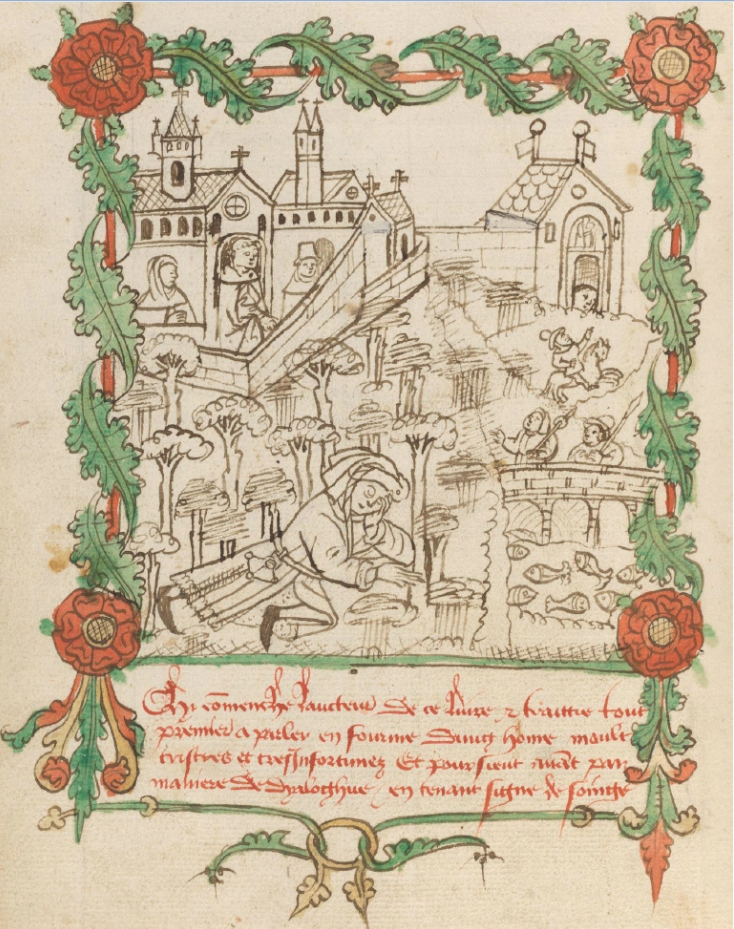 Chy cōmenche laucteur de ce livre 2 traittie tout
premier a parler en fourme dung home moult
tristres et tresInfortunez Et poursieut auāt par
maniere de dyaloghue / en tenant signe de soinge